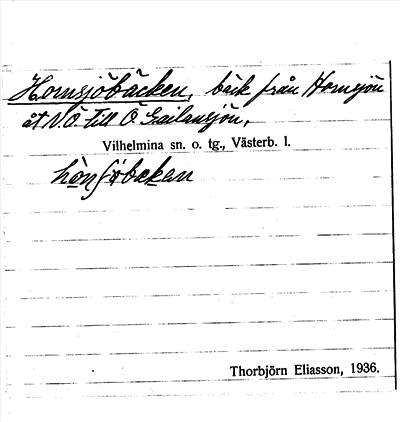 Hornsjöbäcken, bäck från Hornsjön
åt V.O. till Ö.
Vilhelmina sn. o. tg., Västerb. l.
Thorbjörn Eliasson, 1936.